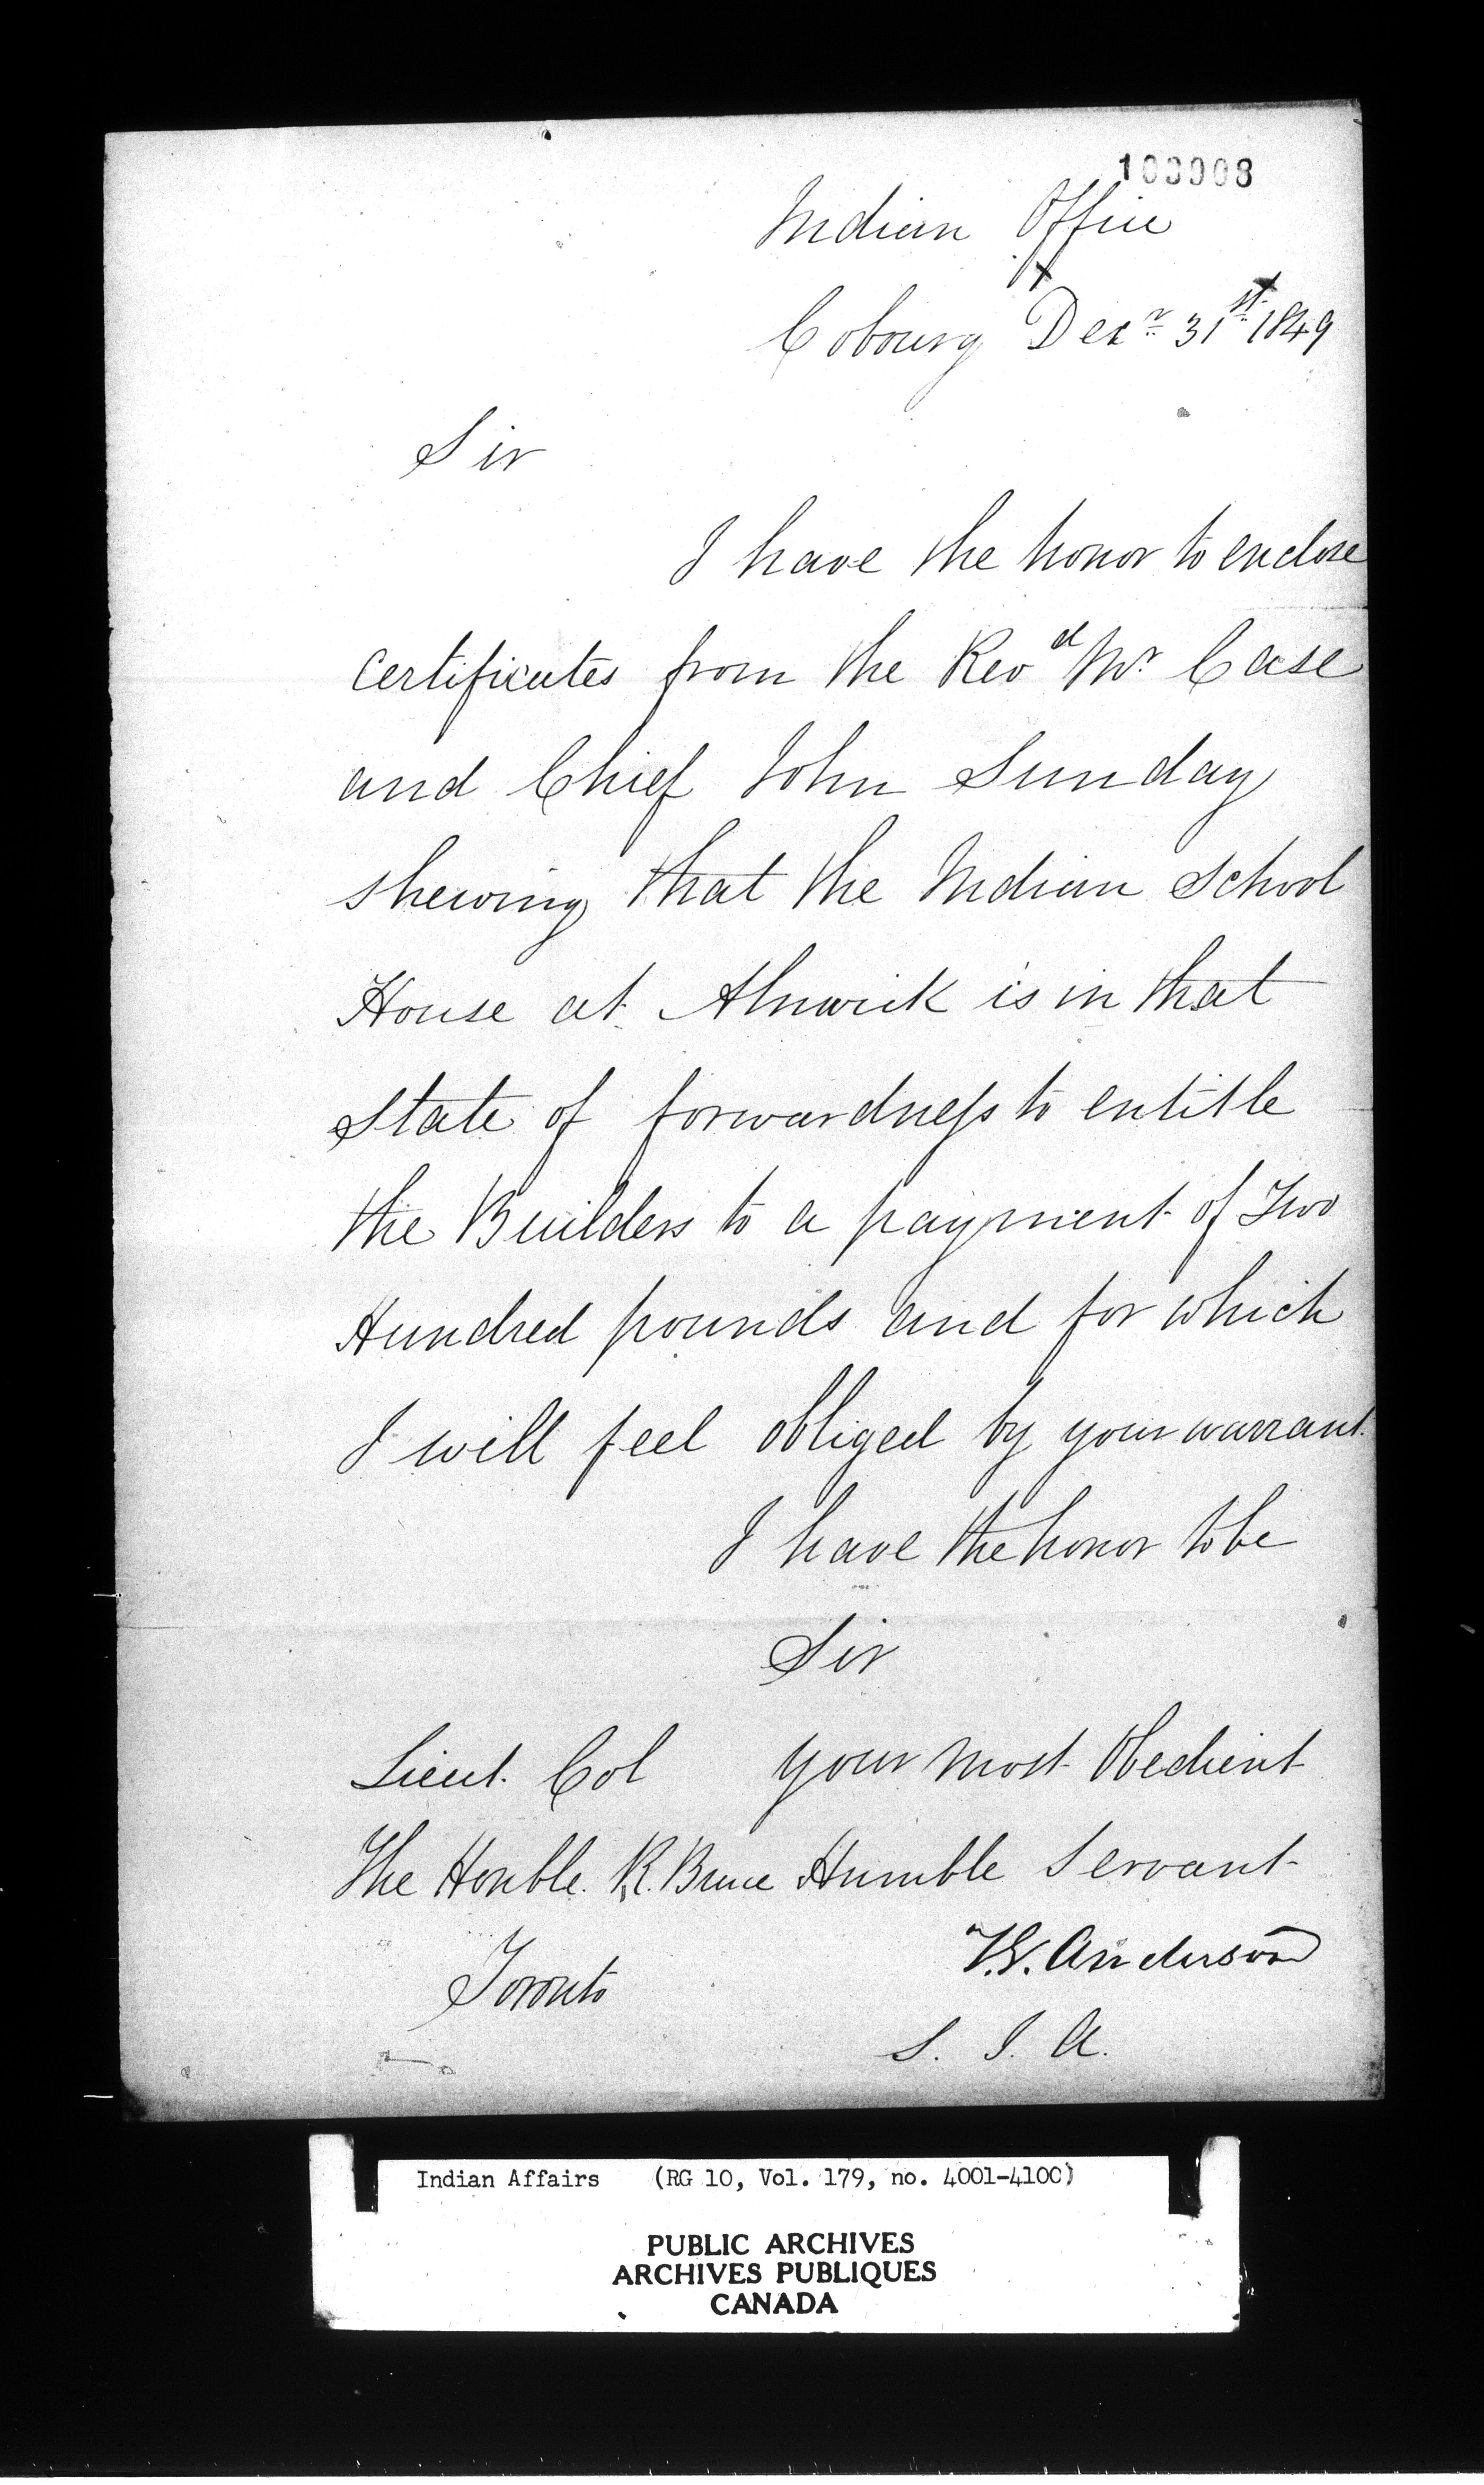 103008
Indian Office
Cobourg Decr 31st 1849
Sir
I have the honor to enclose
certificates from the Revd Mr Case
and Chief John Sunday
shewing that the Indian School
House at Alnwick is in that
state of forwardness to entitle
the Builders to a payment of Two
Hundred pounds and for which
I will feel obliged by your warrant.
I have the honor to be
Sir
your most Obedient
Humble Servant
T.G. Anderson
S. I. A.
Lieut. Col
The Honble. R. Bruce
Toronto
Indian Affairs (RG 10, Vol. 179, no. 4001-4100)
PUBLIC ARCHIVES
ARCHIVES PUBLIQUES
CANADA